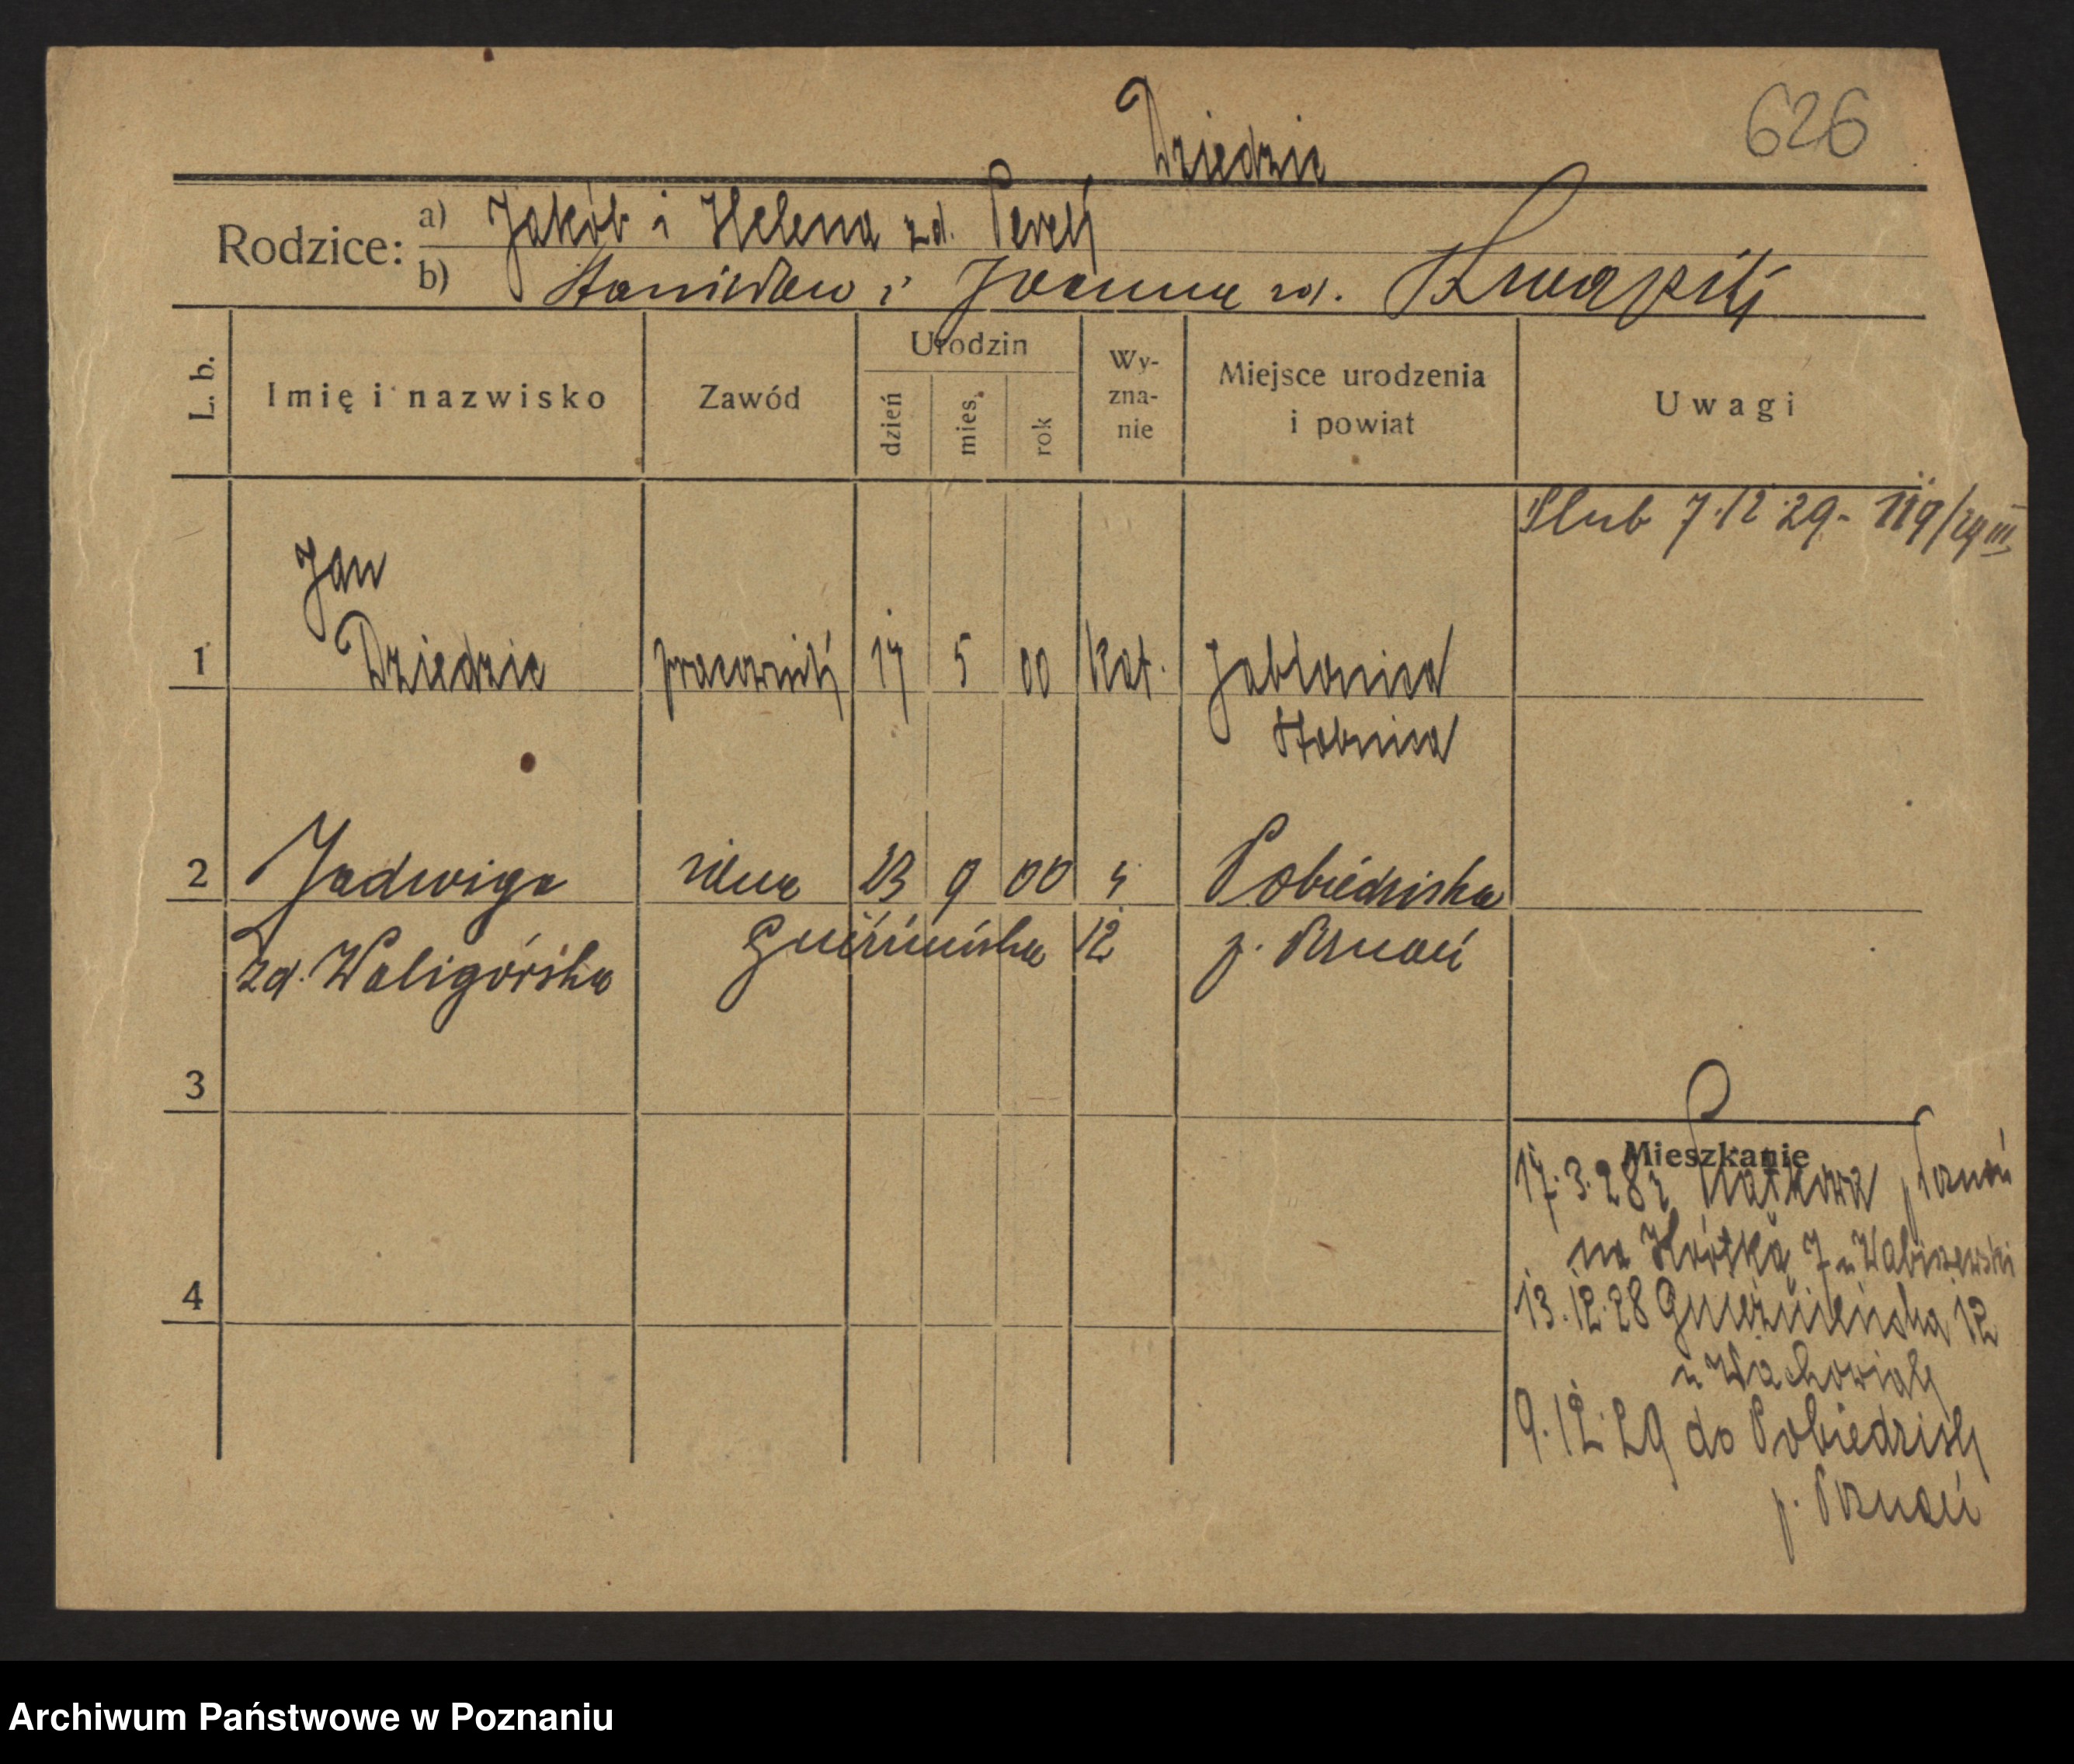 626
Dziedzic
Rodzice: a) Jakób i Helena zd. Perek
b) Stanisław i Joanna zd. Kwapik
L. b. Imię i nazwisko Zawód Urodzin dzień mies. rok Wy-zna-nie Miejsce urodzenia i powiat Uwagi
Slub 7.12.29 - 119/29 III
Jan
1 Dziedzic pracownik 17 5 00 kat. Jabłonica
Stobnica
2 Jadwiga żona 23 9 00 Pobiedziska
zd. Waligórska Gnieźnieńska 12 p. Poznań
3
Mieszkanie
17.3.28 z p. Poznań
na Krótką 7 u
4
13.12.28 Gnieźnieńska 12
u Wachowiak
9.12.29 do Pobiedzisk
p. Poznań
Archiwum Państwowe w Poznaniu